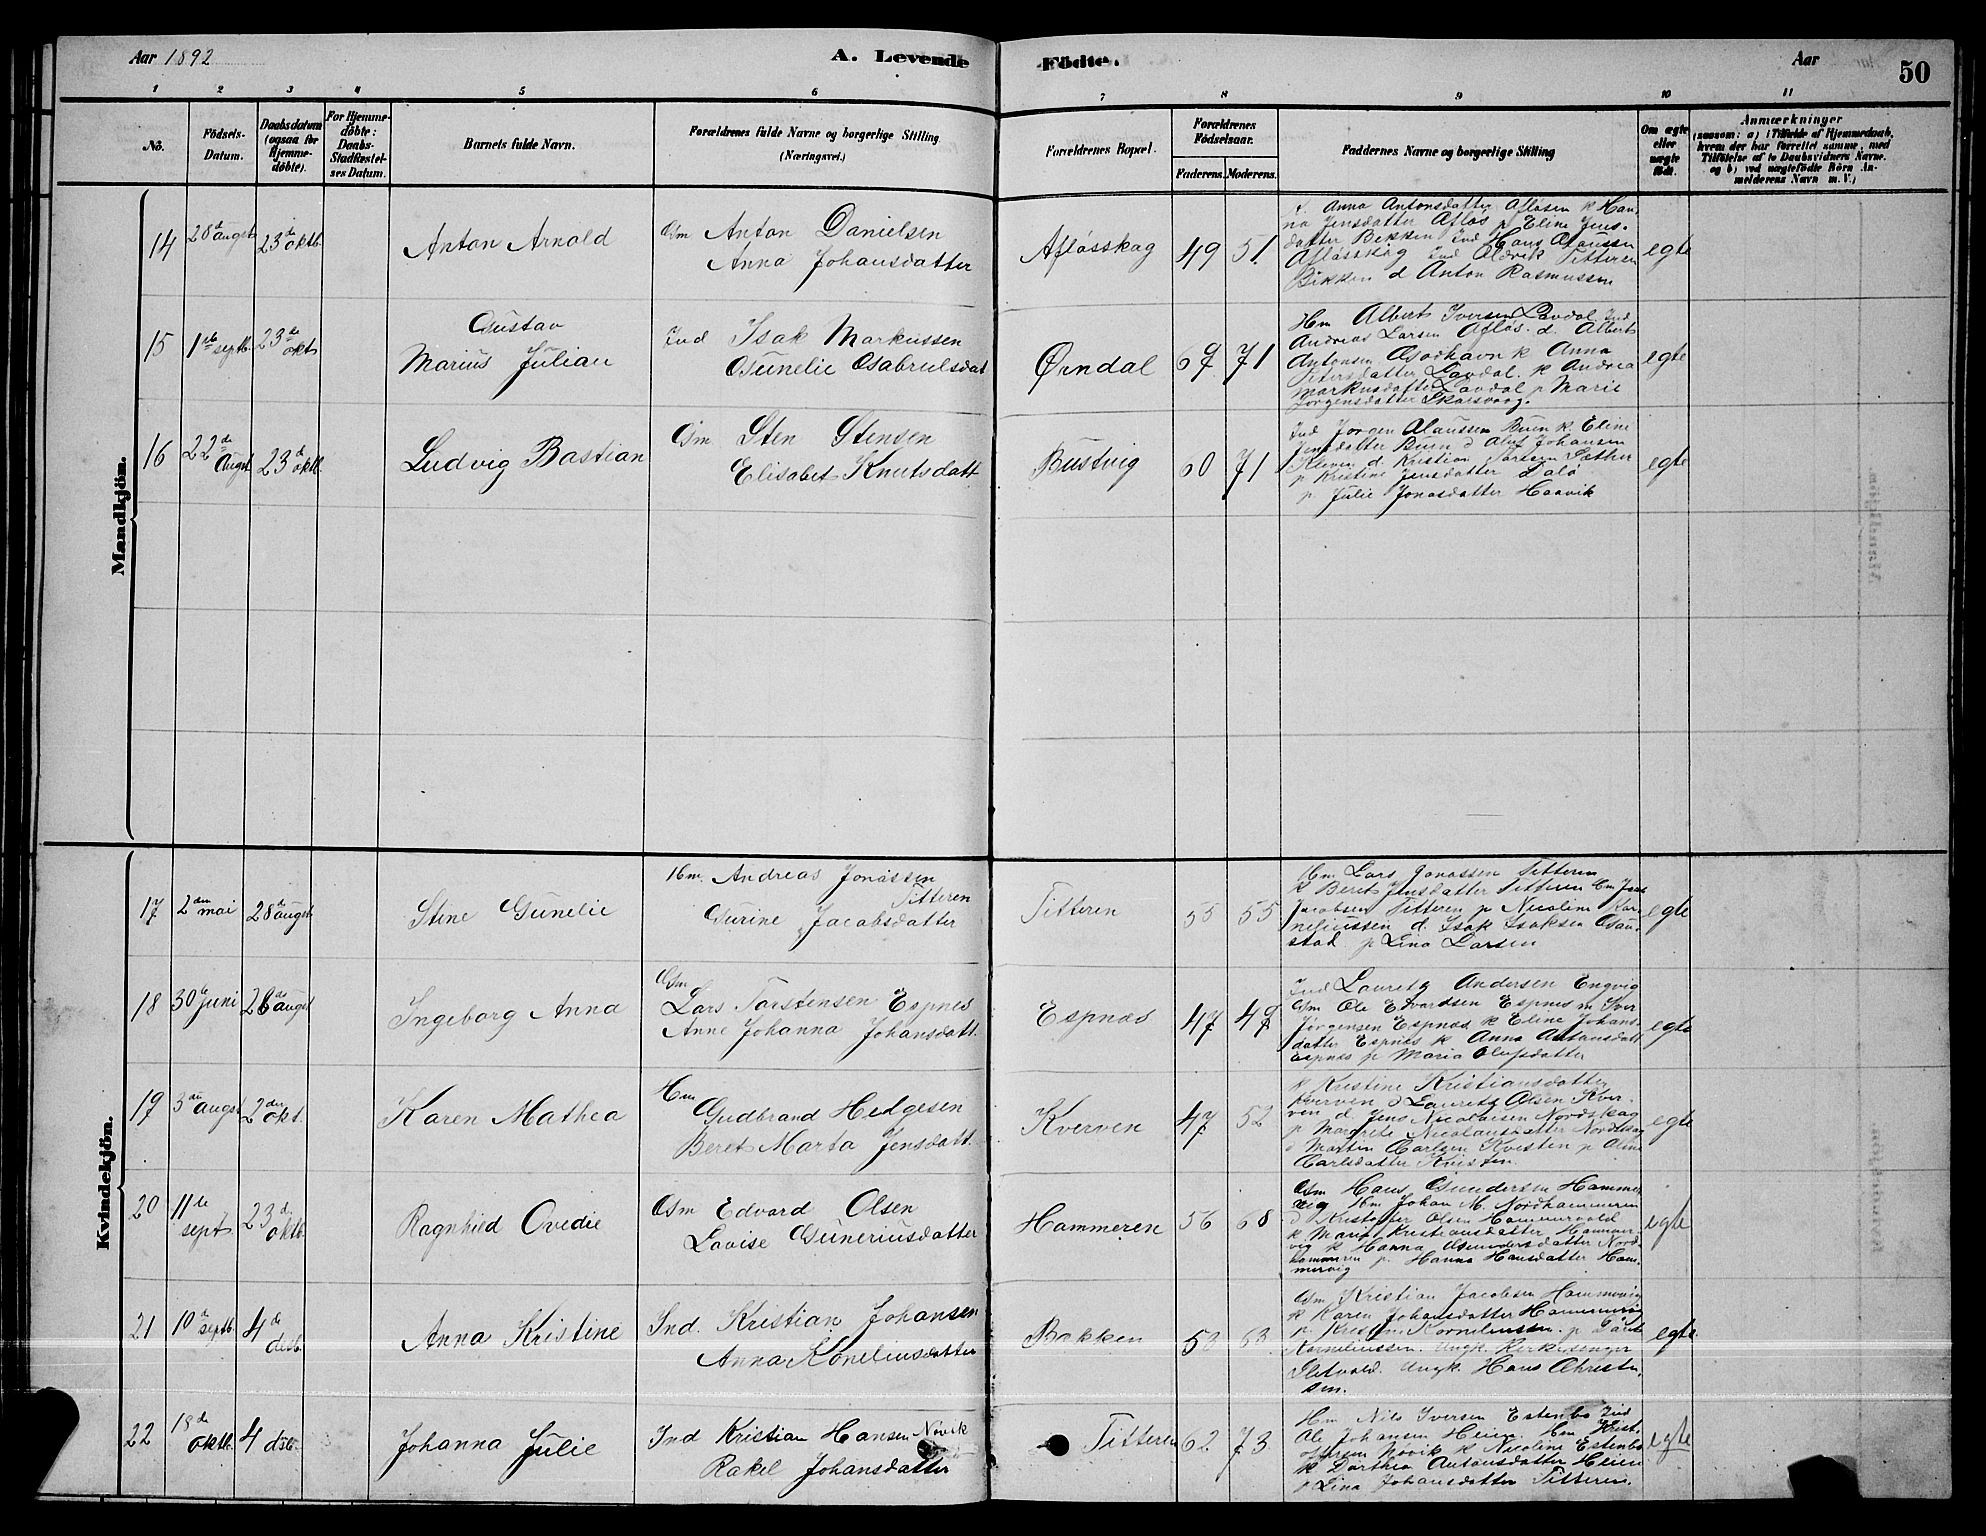 Aar 1892
A. Levende Födte.
Aar
50
1 2 3 4 5 6 7 8 9 10 11
No.
Födsels-Datum.
Daabsdatum (ogsaa for Hjemme-döbte).
For Hjemme-döbte: Daabs-Stadfæstel-ses Datum.
Barnets fulde Navn.
Forældrenes fulde Navne og borgerlige Stilling. (Næringsvei.)
Forældrenes Bopæl.
Forældrenes Födselsaar.
Faderens. Moderens.
Faddernes Navne og borgerlige Stilling
Om ægte eller uægte födt.
Anmærkninger
(saasom: a) i Tilfælde af Hjemmedaab, hvem der har forrettet samme, med Tilföielse af to Daabsvidners Navne, og b) ved uægtefödte Börn An-melderens Navn m. V.)
Mandkjön.
14 28 augst 23 d oktb. Anton Arnold
Gm Anton Danielsen
Anna Johansdatter
Aflösskag 49 51
Anna Antonsdatter Aflösen k Han-
na Jensdatter Aflös p Eline Jens-
datter Bekken Ind Hans Olaussen
Aflösskag Ind Titteren
Bekken d Anton Rasmussen
egte
15 1ste septb. 23 de okt Gustav
Marius Julian
Ind Isak Markussen
Gunelie Gabrielsdat
Örndal 67 71
Hm Albert Iversen Lavdal Ind
Andreas Larsen Aflös. d. Albert
Antonsen Godhavn k Anna
Petersdatter Lavdal. k Andrea
Markusdatter Lavdal p Marie
Jörgensdatter Skarsvaag.
egte
16 22 de augst 23 d oktb. Ludvig Bastian
Gm Sten Stensen
Elisabet Knutsdatt.
Bustvig 60 71
Ind Jorgen Olaussen Buen k. Eline
Jensdatter Buen d Oluf Johansen
Kleven d. Kristian Larsen Sæther
p Kristine Jensdatter Dalö
p. Julie Jonasdatter Haavik
egte
Kvindekjön.
17 2 den mai 28 d augst Stine Gunelie
Hm. Andreas Jonassen
Titteren
Gurine Jacobsdatter
Titteren 55 55
Hm Lars Jonassen Titteren
k Beret Jensdatter Titteren Gm Jens
Jacobsen Titteren p Nicoline Kor-
neliussen d. Isak Isaksen Gaus-
stad p Lina Larsen
egte
18 30te juni 28 de augst Ingeborg Anna
Gm
Lars Torstensen Espnes
Anne Johanna Johansdatt.
Espnæs 47 49
Ind Lauretz Andersen Engvig
Gm Ole Edvardsen Espnes m Iver
Jörgensen Espnæs k Eline Johans-
datter Espnes k Anna Antonsdatt
Espnæs p Maria Olufsdatter
egte
19 3 die augst 2 den okt. Karen Mathea
Hm
Gudbrand Helgesen
Beret Marta Jensdatt.
Kverven 47 52
k Kristine Kristiansdatter
Kverven d Lauretz Olsen Kver-
ven d. Jens Nicolaisen Nordskag
p Margrete Nicolausdatter Nordskag
d Martin Carlsen Kvisten p Oline
Carlsdatter Kvisten.
egte
20 11te sept 23 d. oktb. Ragnhied Ovedie
Gm Edvard Olsen
Lovise Guneriusdatter
Hammeren 56 68
Gm Hans Gundersen Hammer-
vig Hm Johan M. Nordhammeren
d Kristoffer Olsen Hammervold
k Marie Kristiansdatter Hammer-
vig k Hanna Gundersdatter Nord-
hammeren p. Hanna Hansdatter Ham-
mervig
egte
21 10 d septb. 4 de desb. Anna Kristine
Ind. Kristian Johansen
Anna Koneliusdatter
Bakken 58 63
Gm Kristian Jacobsen Hammervig
k Karen Johansdatter Hammervig
p. Kristine Korneliussen. p
Korneliussen. Ungk Kirkesenger
Sletvold. Ungk. Hans Christen-
sen.
egte
22 18 de oktb. 4 dsb. Johanna Julie
Ind Kristian Hansen Novik
Rakel Johansdatter
Titteren 62 73
Hm Nils Iversen Estenbo Ind
Ole Johansen Heien. Hm Krist-
offersen Novik k Nicoline Estenbo
k Dorthea Antonsdatter Heien
p Lina Johansdatter Titteren
egte